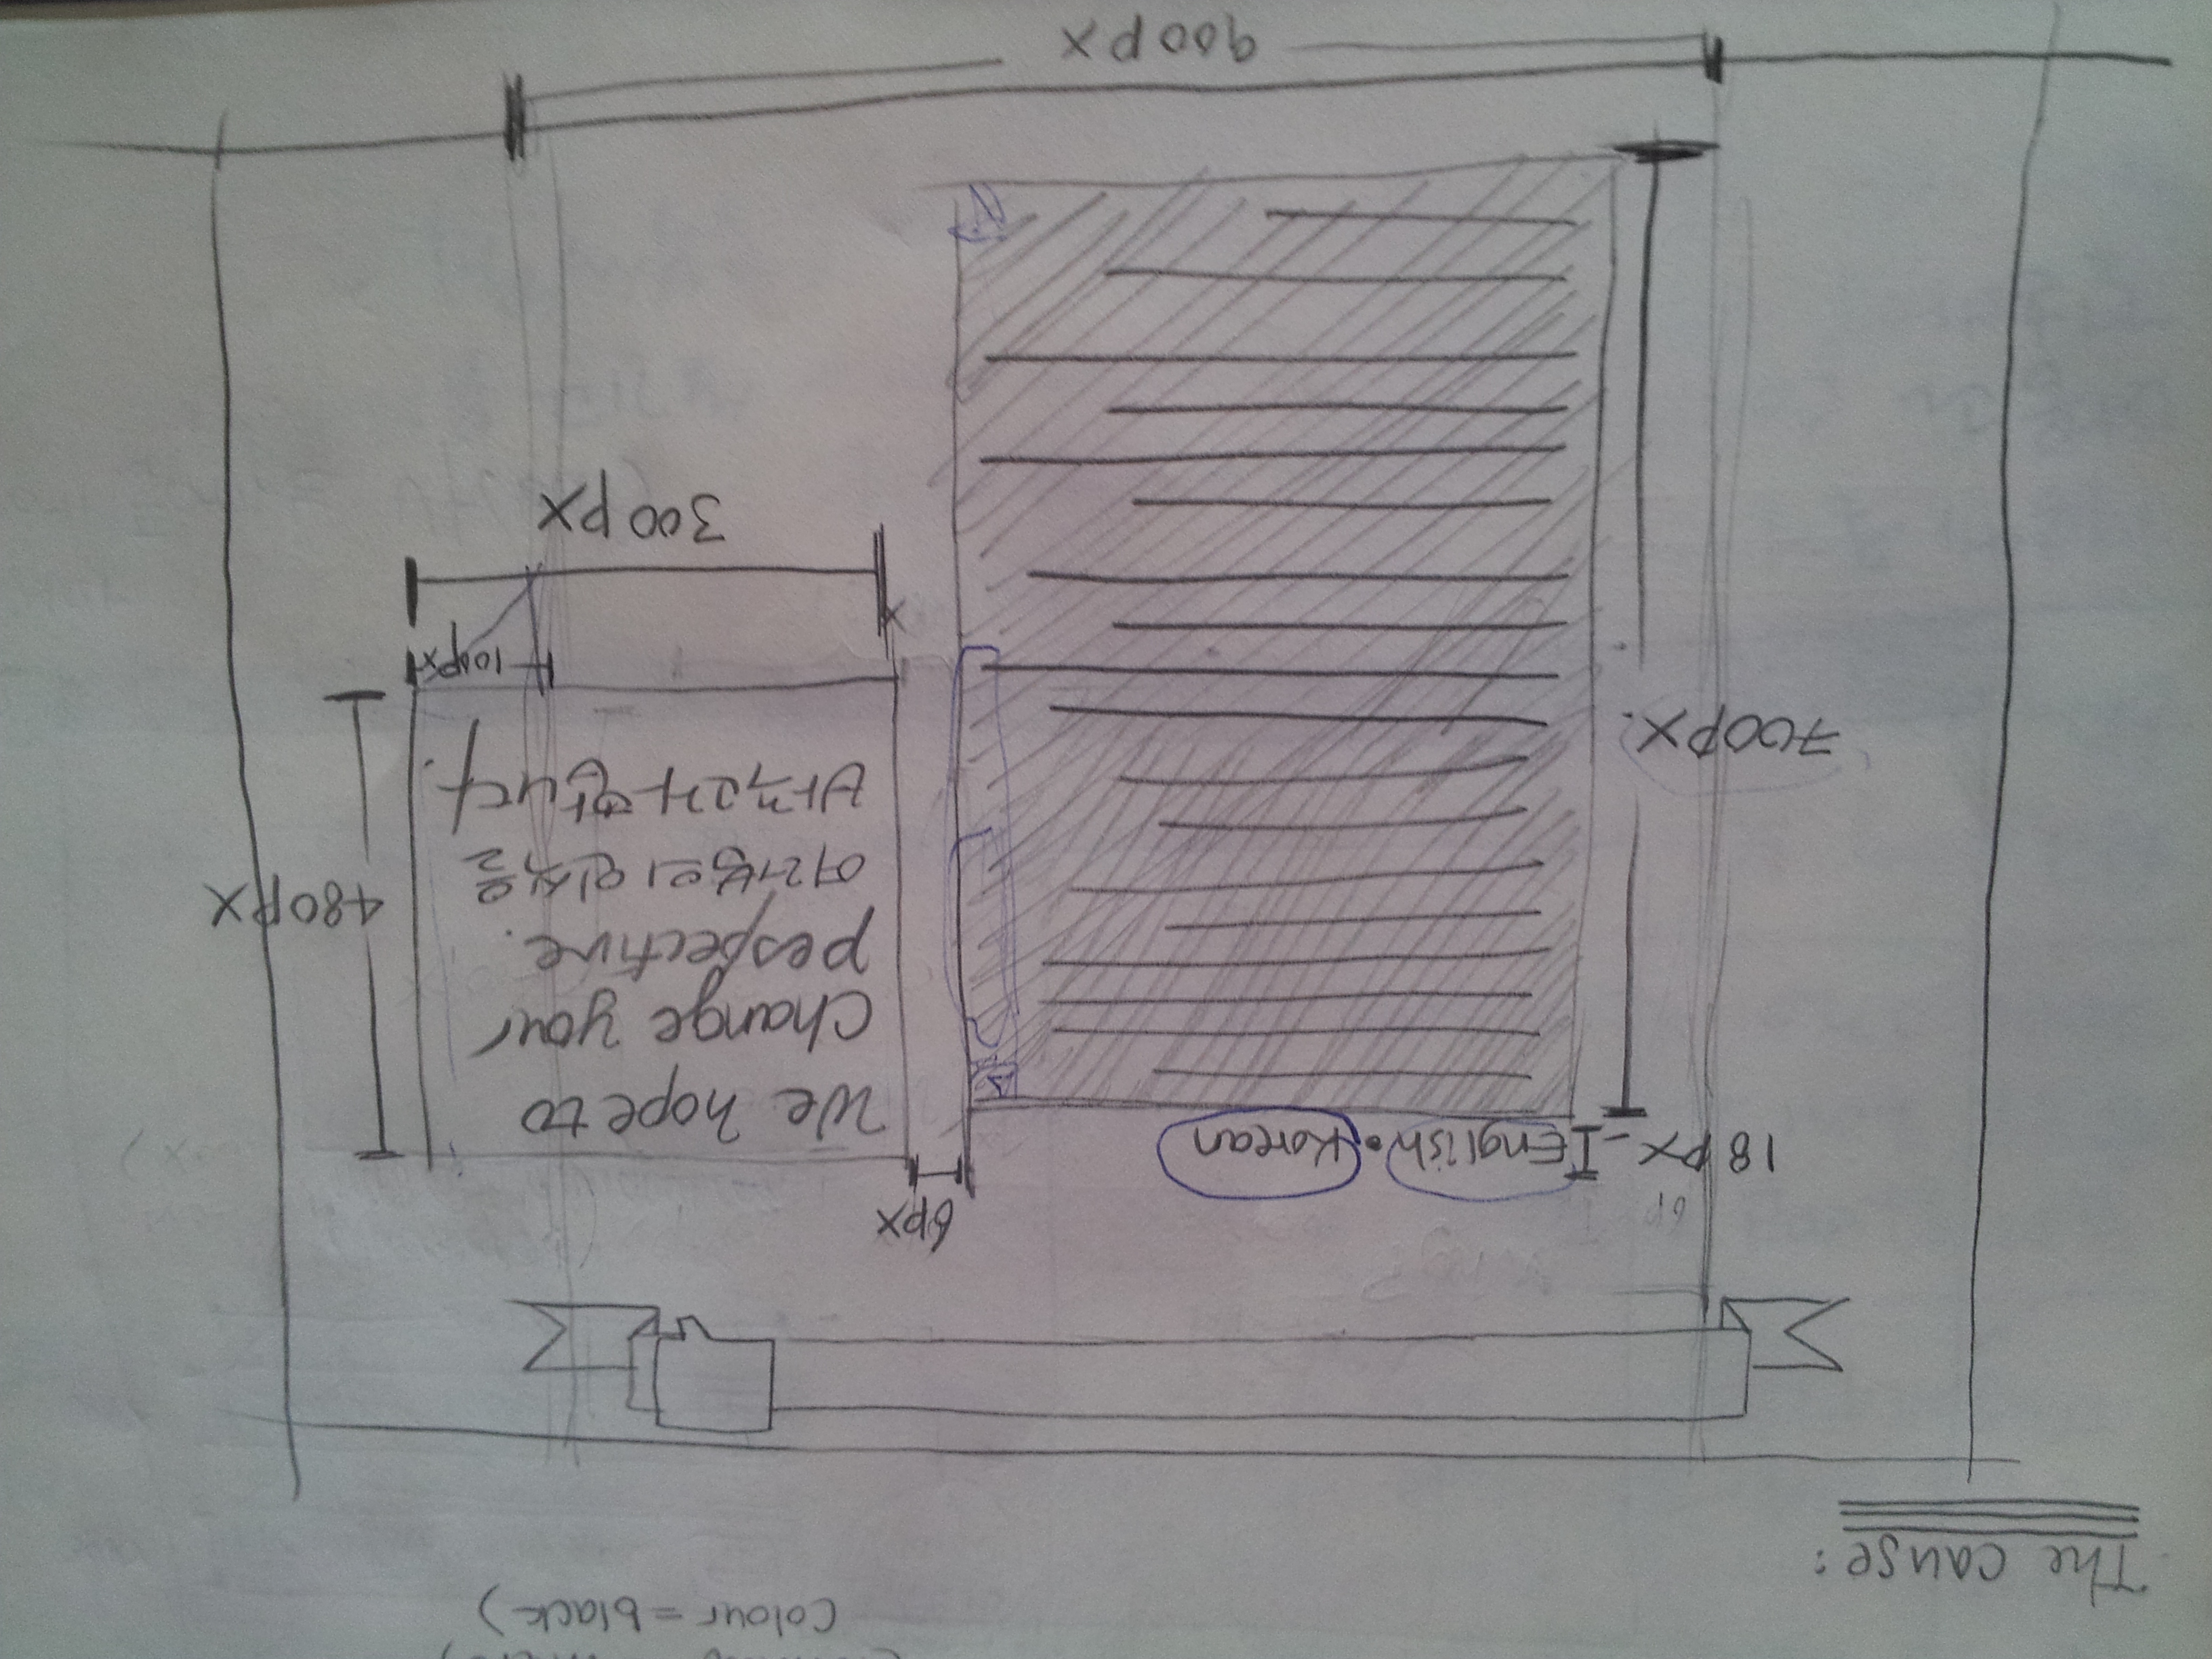 Colour = black)
The cause:
6p
6px
18px
English • Korean
We hope to
change your
pespective.
여러분의 인식을
바꾸고자 합니다.
480px
700px.
100px
x
300px
900px